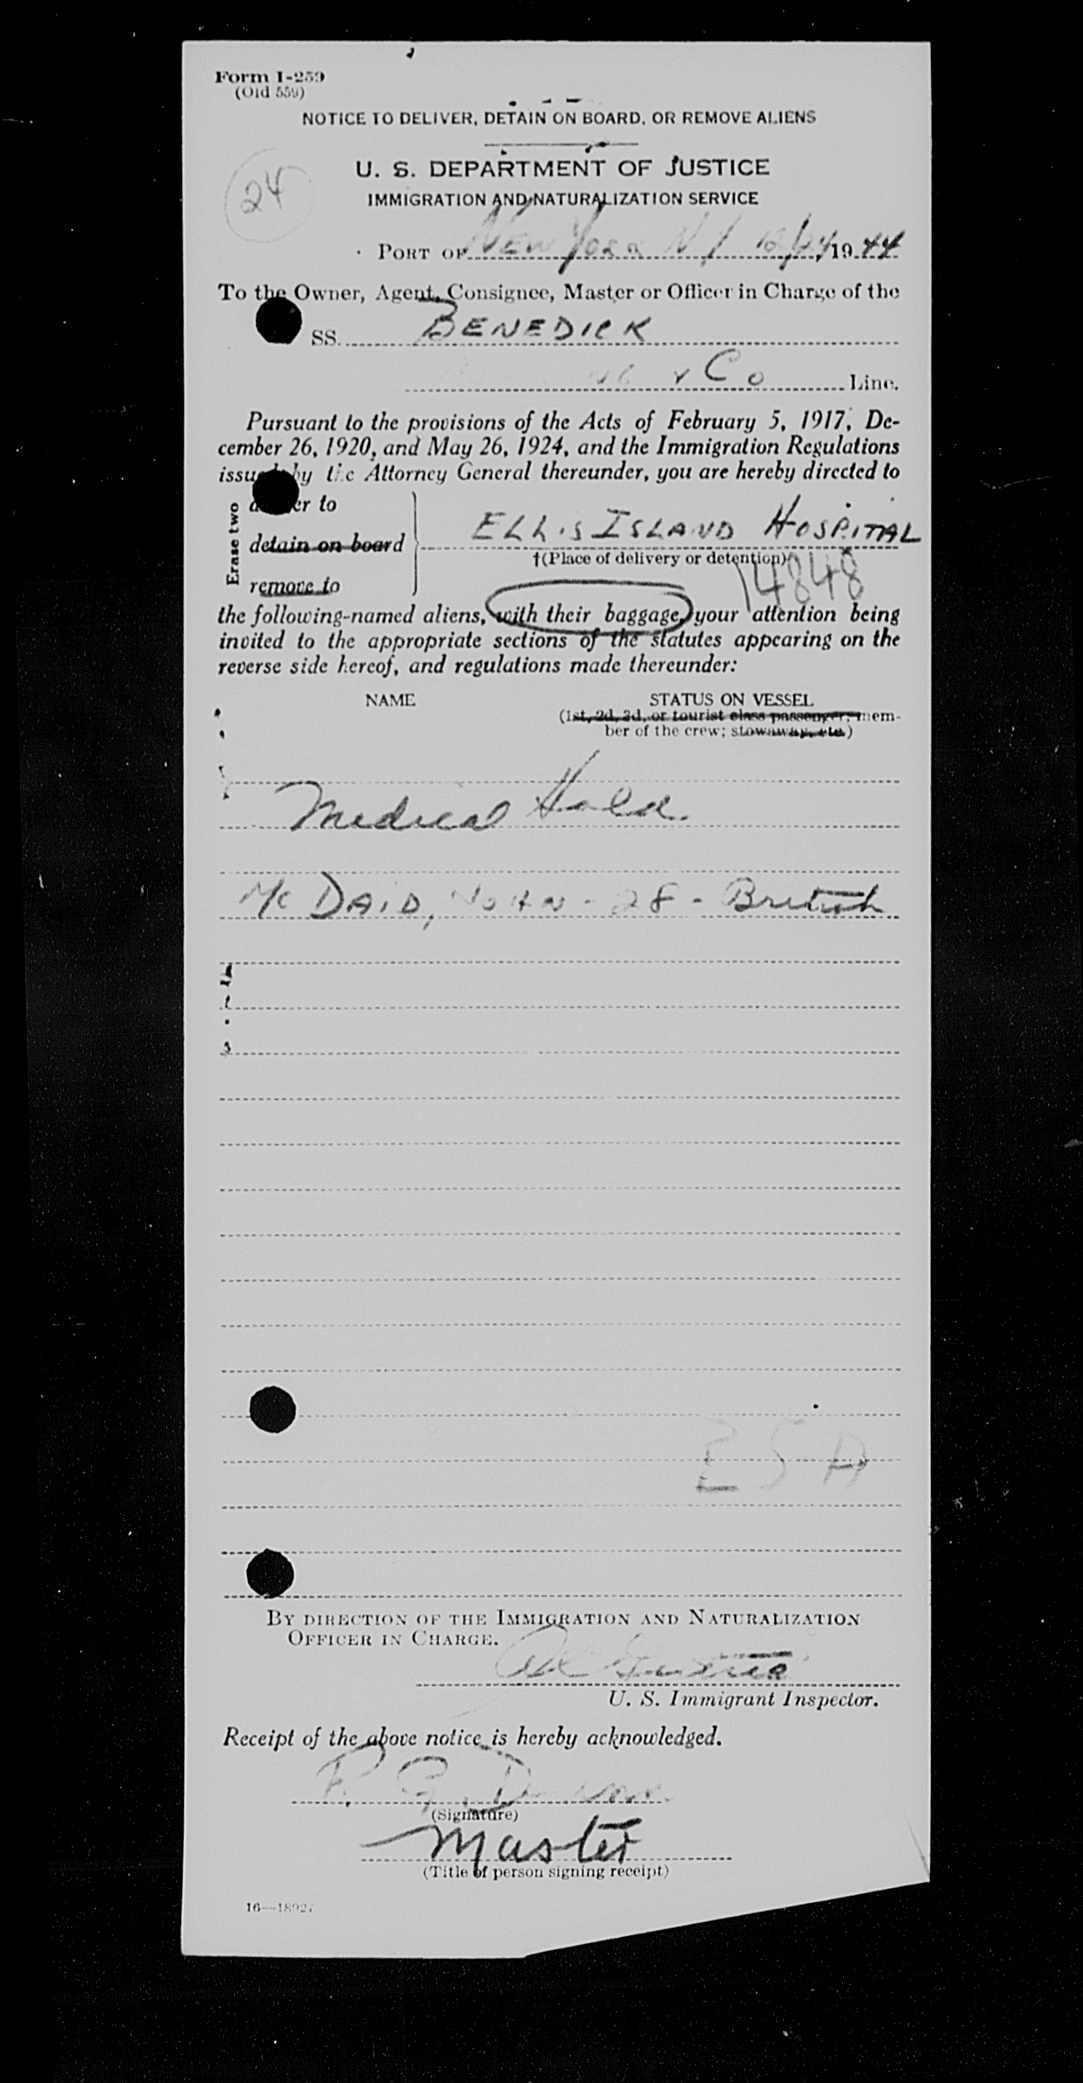 Form I-259
(Old 559)
NOTICE TO DELIVER, DETAIN ON BOARD, OR REMOVE ALIENS
24
U. S. DEPARTMENT OF JUSTICE
IMMIGRATION AND NATURALIZATION SERVICE
PORT OF NEW YORK N Y 12/24/1944
To the Owner, Agent, Consignee, Master or Officer in Charge of the
SS. BENEDICK
& Co Line.
Pursuant to the provisions of the Acts of February 5, 1917, De-
cember 26, 1920, and May 26, 1924, and the Immigration Regulations
issued by the Attorney General thereunder, you are hereby directed to
Erase two
deliver to
detain on board
remove to
ELLIS ISLAND HOSPITAL
†(Place of delivery or detention)
14848
the following-named aliens, with their baggage, your attention being
invited to the appropriate sections of the statutes appearing on the
reverse side hereof, and regulations made thereunder:
NAME STATUS ON VESSEL
(1st, 2d, 3d, or tourist class passenger; mem-
ber of the crew; stowaway, etc.)
Medical Hold.
Mc DAID, JOHN - 28 - British
E S A
BY DIRECTION OF THE IMMIGRATION AND NATURALIZATION
OFFICER IN CHARGE.
U. S. Immigrant Inspector.
Receipt of the above notice is hereby acknowledged.
R. G.
(Signature)
Master
(Title of person signing receipt)
16—18927